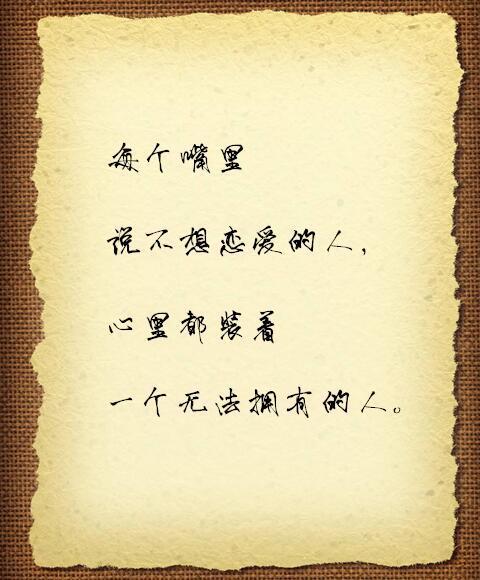 每个嘴里
说不想恋爱的人，
心里都装着
一个无法拥有的人。